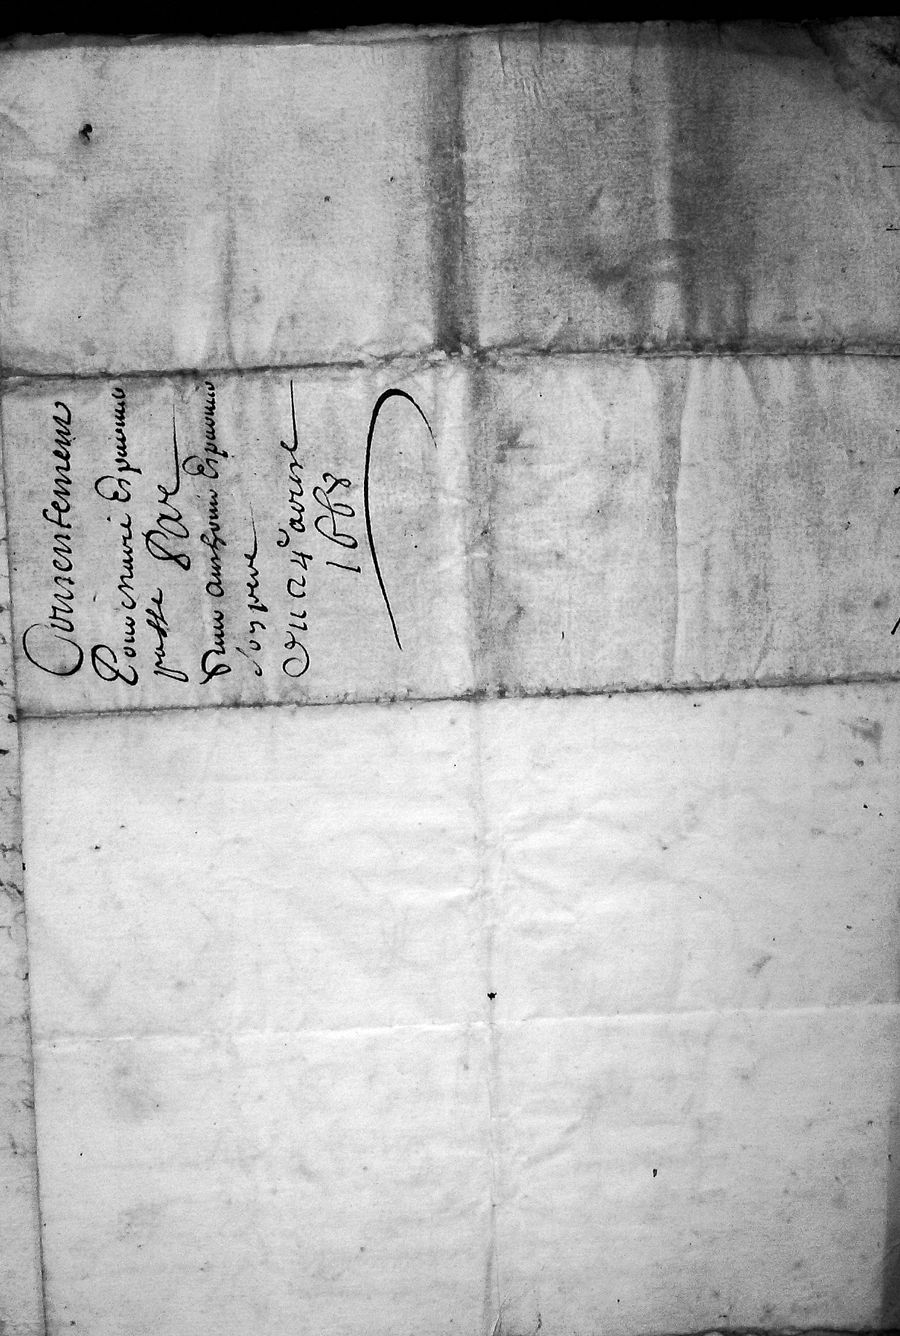 Consentement
Pour marie Espinnie
passe par
Sieur anthoine Espinnie
son pere
Du 24e avril
1668